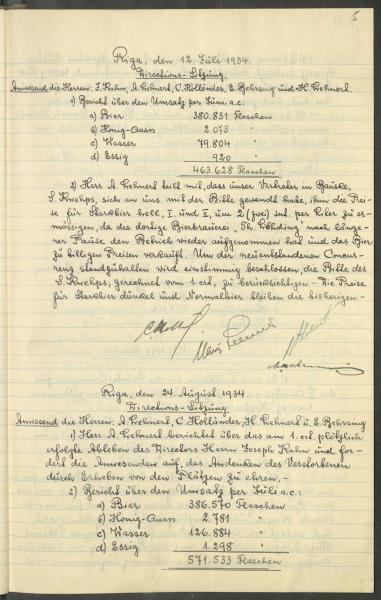 5
Riga, den 12. Juli 1934.
Directions-Sitzung.
Anwesend die Herren: J. Kuhn, A. Lehnert, C. Holländer, E. Behrsing und H. Lehnert.
1) Bericht über den Umsatz per Juni a.c:
a) Bier 380.831 Flaschen
b) Honig-Quass 2.073 "
c) Wasser 79.804 "
d) Essig 920 "
463.628 Flaschen
2) Herr A. Lehnert teilt mit, dass unser Vertreter in Bauske,
S. sich an uns mit der Bitte gewandt habe, ihm die Prei-
se für Starkbier hell, I. und II, um 2 (zwei) snt. per Liter zu er-
mässigen, da die dortige Bierbrauerei „Th. nach länge-
rer Pause den Betrieb wieder aufgenommen hat und das Bier
zu billigen Preisen verkauft. Um der neuentstandenen Concur-
renz standzuhalten wird einstimmig beschlossen, die Bitte des
S. gerechnet vom 1. crt, zu berücksichtigen. - Die Preise
für Starkbier dunkel und Normalbier bleiben die bisherigen. -
Riga, den 24. August 1934.
Directions-Sitzung
Anwesend die Herren: A. Lehnert, C. Holländer, H. Lehnert u. E. Behrsing
1) Herr A. Lehnert berichtet über das am 1. crt. plötzlich
erfolgte Ableben des Directors Herrn Joseph Kuhn und for-
dert die Anwesenden auf, das Andenken des Verstorbenen
durch Erheben von den Plätzen zu ehren. -
2) Bericht über den Umsatz per Juli a.c:
a) Bier 386.570 Flaschen
b) Honig-Quass 2.781 "
c) Wasser 126.884 "
d) Essig 1.298 "
571.533 Flaschen